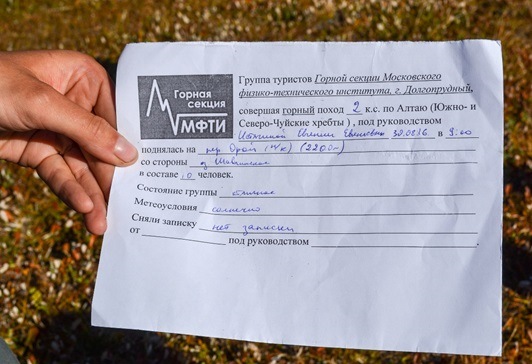 Горная
секция
МФТИ
Группа туристов Горной секции Московского
физико-технического института, г. Долгопрудный,
совершая горный поход 2 к.с. по Алтаю (Южно- и
Северо-Чуйские хребты ) , под руководством
Евгении Евгеньевны 30.08.16. в 9:00
поднялась на пер. (н/к) (2200м)
со стороны
в составе 10 человек.
Состояние группы отличное
Метеоусловия солнечно
Сняли записку нет записки
от под руководством